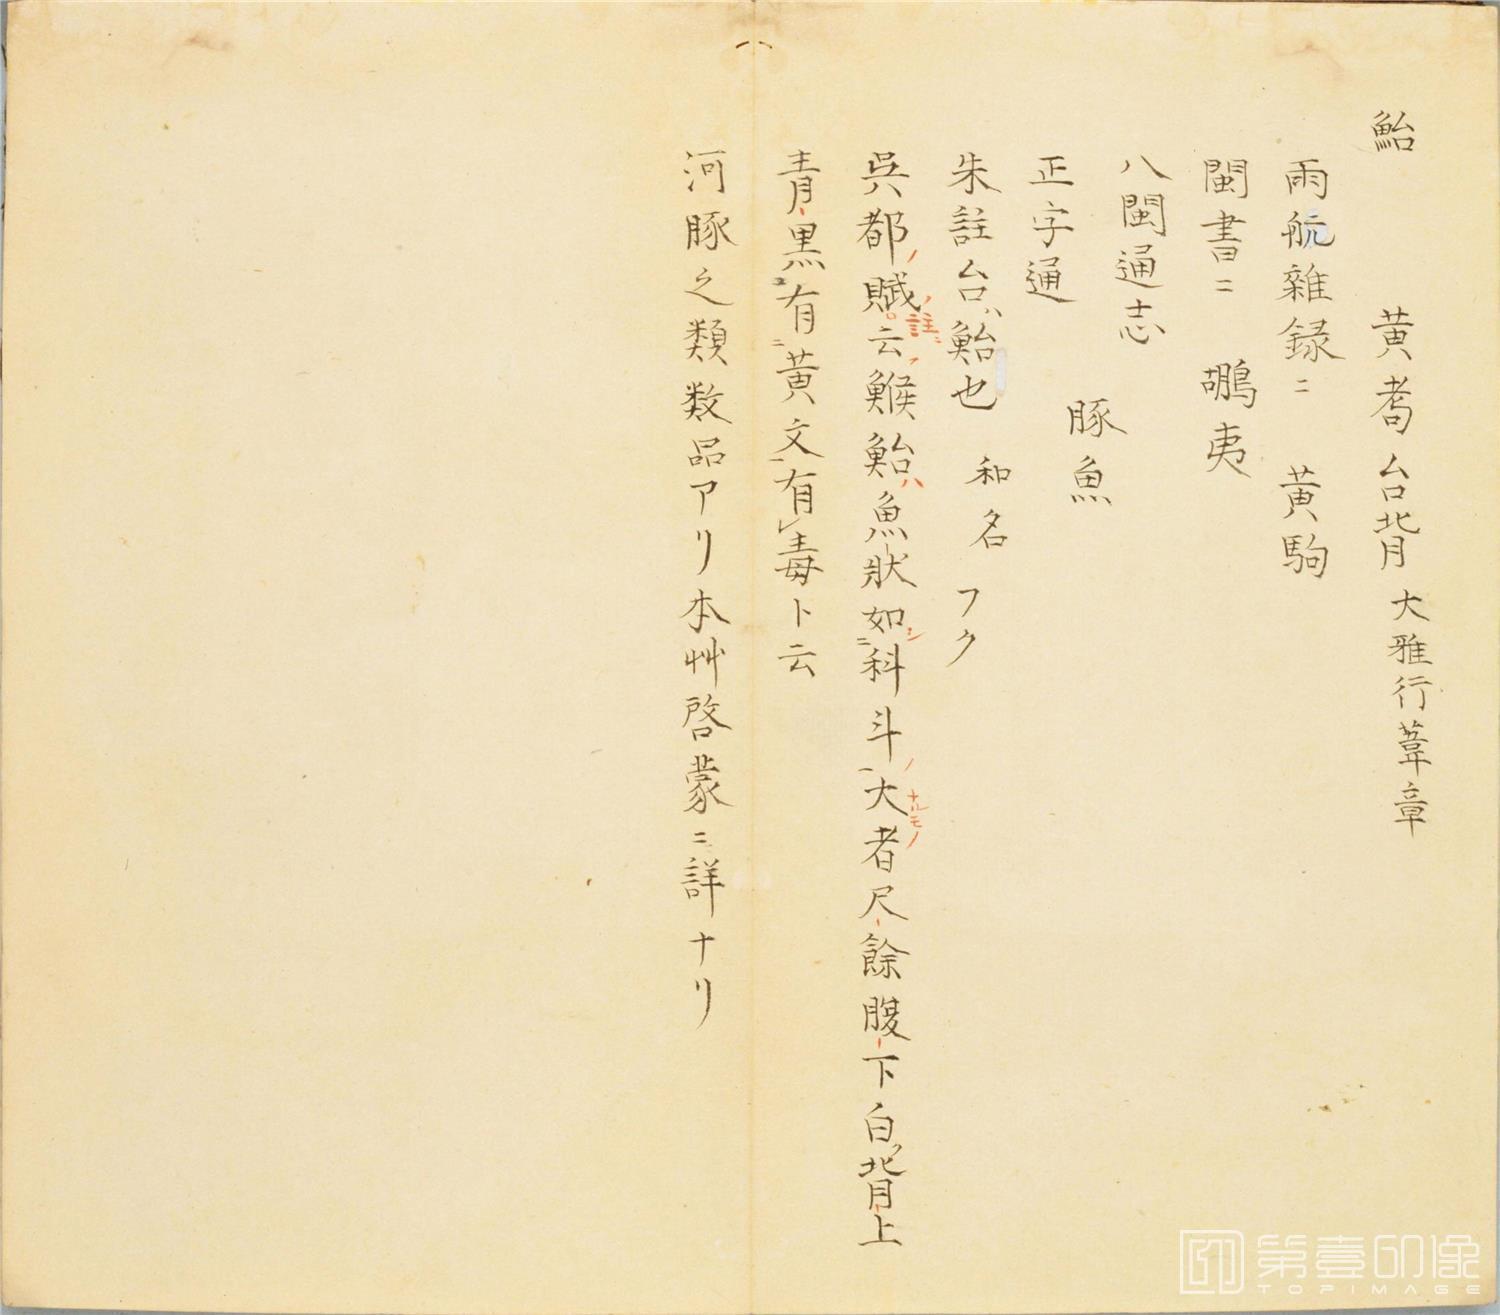 鮐
黄耇台背 大雅行葦章
雨航雜録ニ 黄駒
閩書ニ 鶘夷
八閩通志
正字通 豚魚
朱註台ハ鮐也 和名 フク
呉都ノ賦ノ註ニ云フ鯸鮐ハ魚狀如シ二科斗ノ一大ナルモノ者尺餘腹下白ク背上
青黒有二黄文一有レ毒ト云
河豚之類数品アリ本艸啓蒙ニ詳ナリ
第壹印像
TOPIMAGE